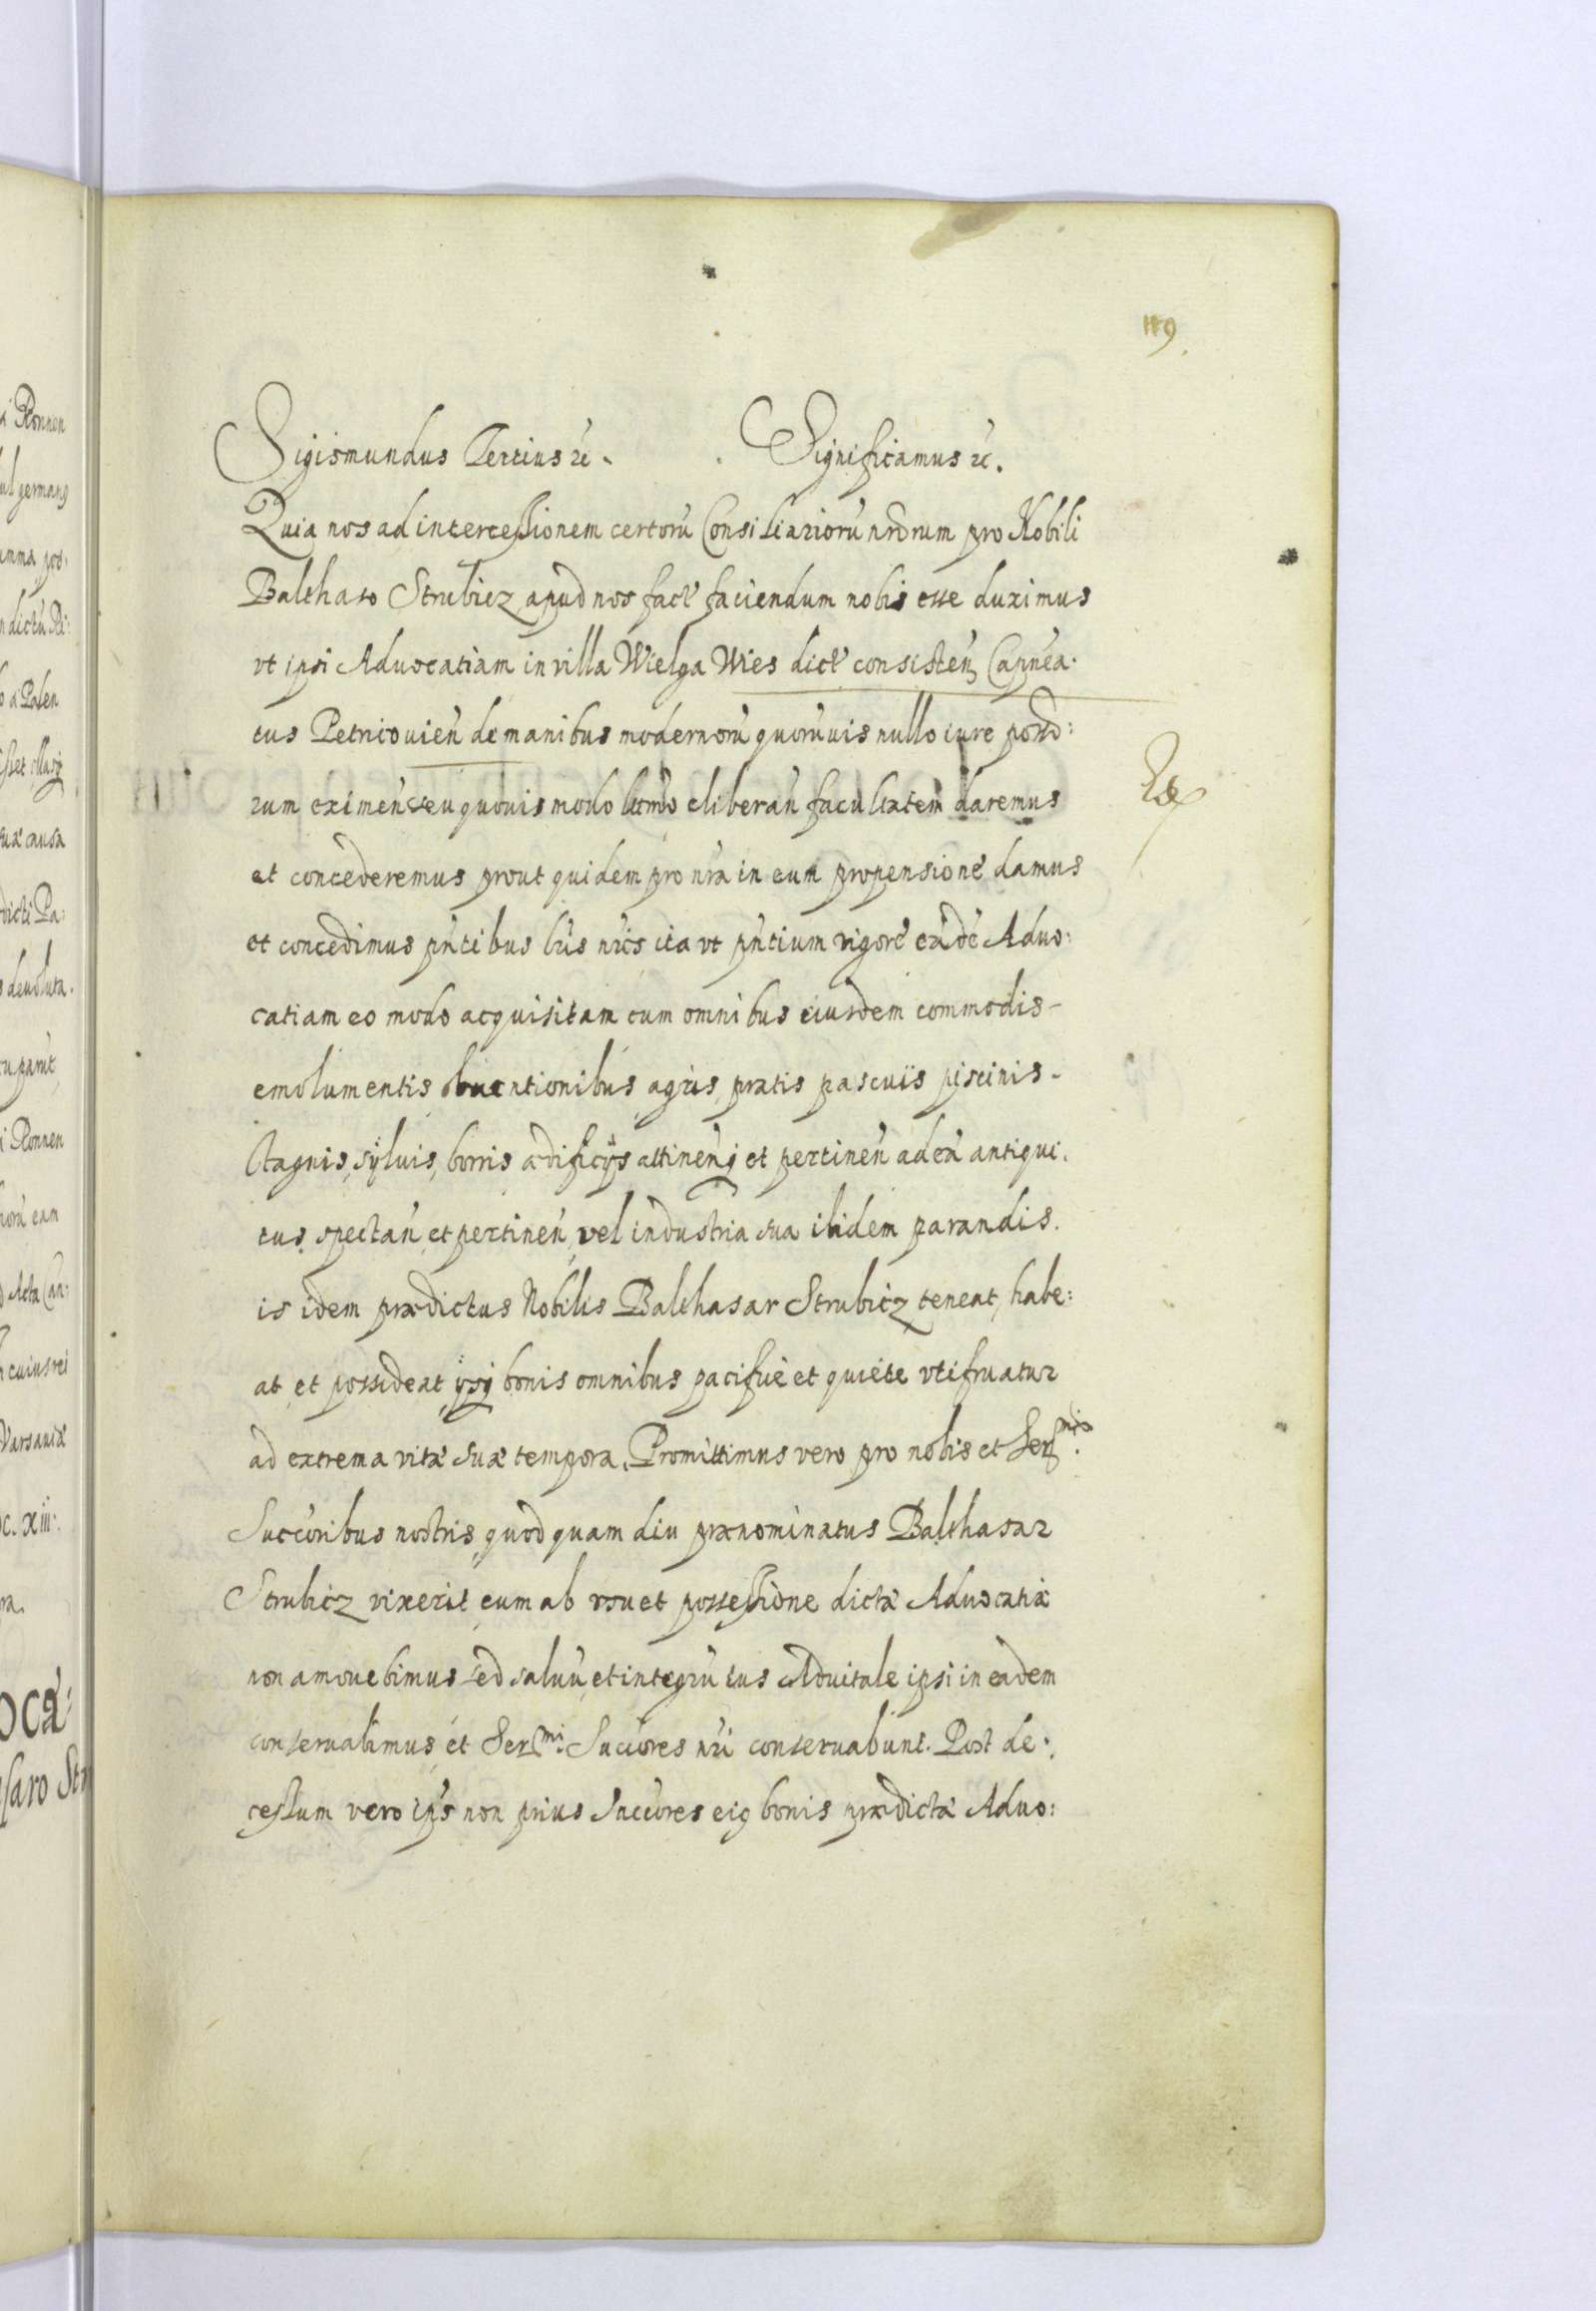 119.
Sigismundus Tertius ꝛc. Significamus ꝛc.
Quia nos ad intercessionem certorũ Consiliariorũ nrõrum pro Nobili
Balthasº Strubicz apud nos fact' faciendum nobis esse duximus
vt ipsi Aduocatiam in villa Wielga Wies dict' consisteñ Capnea·
tus Petricouieñ de manibus modernorũ quorũuis nullo iure possõ:
rum eximeñ seu quouis modo ltĩmo eliberañ facultatem daremus
et concederemus prout quidem pro nrã in eum propensionẽ damus
et concedimus pñtibus lrĩs nrĩs ita vt pñtium vigorẽ eãdẽ Aduo:
catiam eo modo acquisitam cum omnibus eiusdem commodis-
emolumentis obuentionibus agris, pratis pascuis piscinis-
stagnis, syluis, borris ædificijs attineñ et pertineñ ad eã antiqui.
tus spectañ et pertineñ, vel industria sua ibidem parandis.
is idem prædictus Nobilis Balthasar Strubicz teneat, habe:
at et possideat ijsq bonis omnibus pacificè et quietè vtifruatur
ad extrema vitæ suæ tempora. Promittimus vero pro nobis et Ser.mis
Succoribus nostris, quod quam diu prænominatus Balthasar
Strubicz vixerit, eum ab vsu et possessione dictæ Aduocatiæ
non amouebimus sed saluũ, et integrũ ius Aduitale ipsi in eadem
conseruabimus, et Ser.mi Succores nrĩ conseruabunt. Post de:
cessum vero ips' non prius Succores eiq bonis prædictæ Aduo: